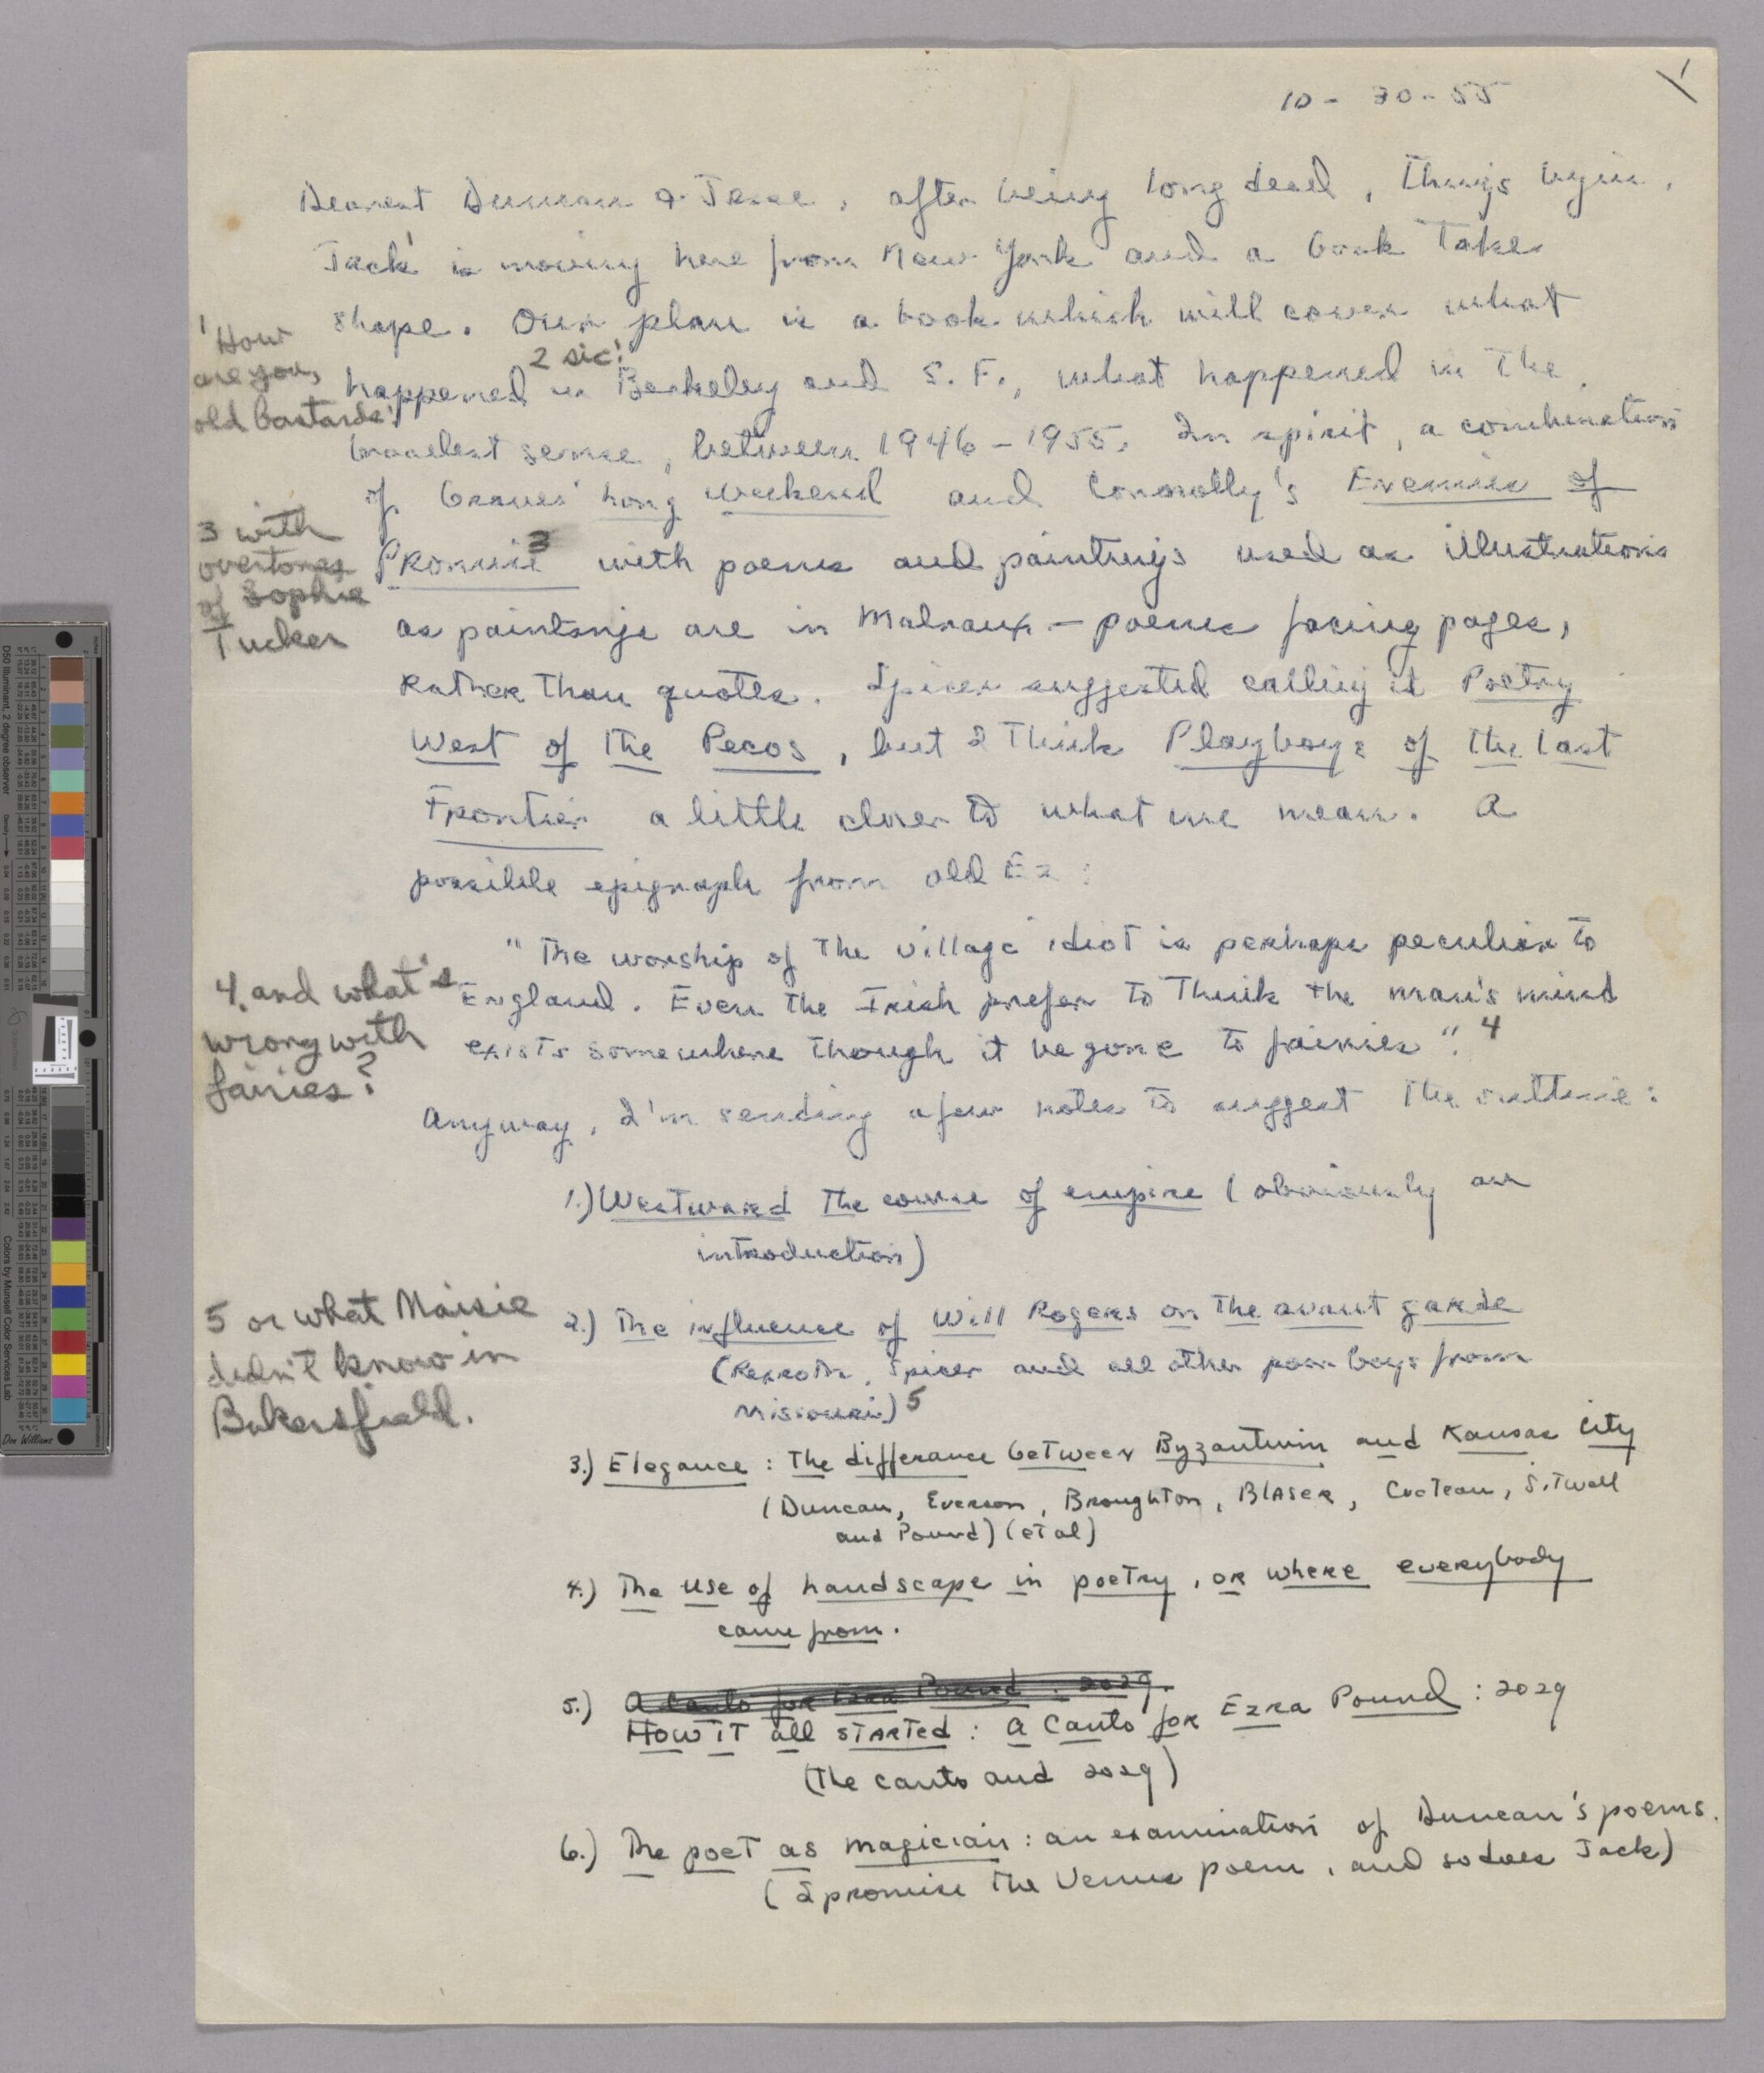 1
10 - 30 - 55
Dearest Duncan & Jess, after being long dead, things begin.
Jack¹ is moving here from New York and a book takes
shape. Our plan is a book which will cover what
2 sic!
happened in Berkeley and S. F., what happened in the
broadest sense, between 1946 – 1955. In spirit, a combination
of Graves' Long Weekend and Connolly's Enemies of
Promise³ with poems and paintings used as illustrations
as paintings are in Malraux – poems facing pages,
rather than quotes. Spicer suggested calling it Poetry
West of the Pecos, but I think Playboys of the Last
Frontier a little closer to what we mean. A
possible epigraph from old Ez:
"The worship of the village idiot is perhaps peculiar to
England. Even the Irish prefer to think the man's mind
exists somewhere though it be gone to fairies". 4
Anyway, I'm sending a few notes to suggest the outline:
1.) Westward the course of empire (obviously an
introduction)
2.) The influence of Will Rogers on the avant garde
(Rexroth, Spicer and all other poor boys from
Missouri) 5
3.) Elegance: the differance between Byzantium and Kansas City
(Duncan, Everson, Broughton, Blaser, Cocteau, Sitwell
and Pound) (et al)
4.) The use of landscape in poetry, or where everybody
came from.
5.) A Canto for Ezra Pound : 2029.
How it all started : A Canto for Ezra Pound : 2029
(The canto and 2029)
6.) The poet as magician: an examination of Duncan's poems.
(I promise the Venus poem, and so does Jack)
1 How
are you,
old bastards!
3 with
overtones
of Sophie
Tucker
4. and what's
wrong with
fairies?
5 or what Maisie
didn't know in
Bakersfield.
D50 Illuminant, 2 degree observer
Density
Colors by Munsell Color Services Lab
Don Williams